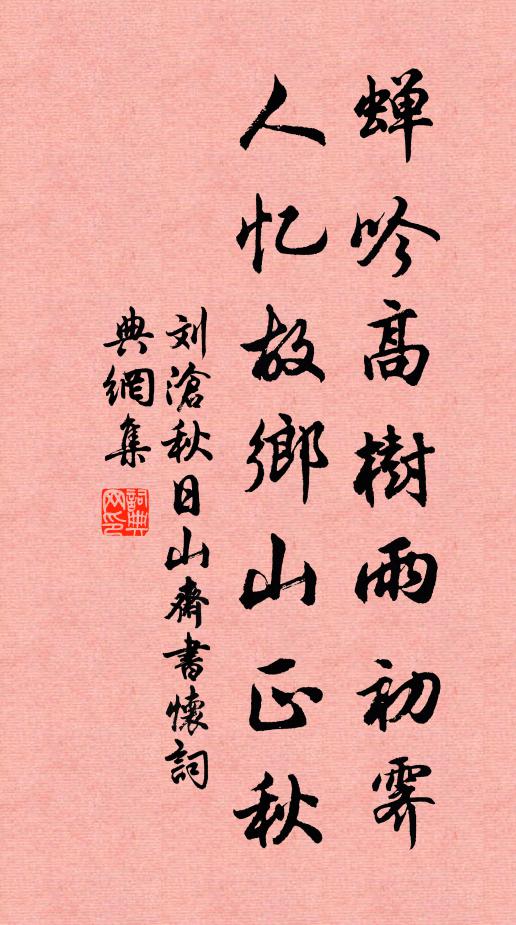 蝉吟高樹雨初霽
人忆故鄉山正秋
刘滄秋日山齋書懷詞
典網集
詞典网印